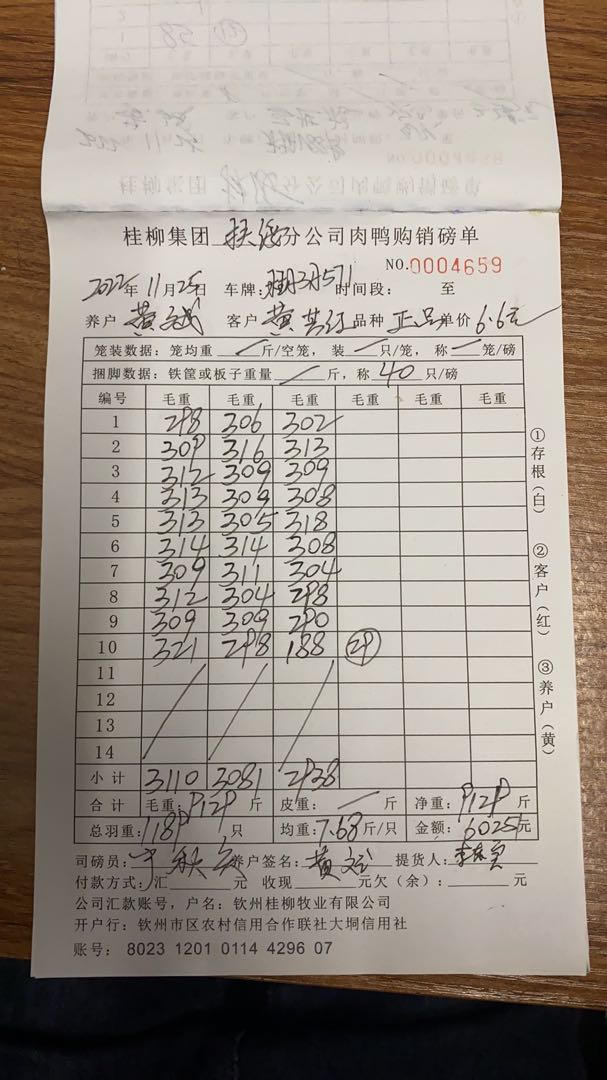 桂柳集团 分公司肉鸭购销磅单
NO.0004659
2022年11月25日 车牌: 571 时间段: 至
养户 黄 客户 黄 品种 正品 单价 6.6元
笼装数据: 笼均重 / 斤/空笼, 装 一 只/笼, 称 一 笼/磅
捆脚数据: 铁筐或板子重量 / 斤, 称 40 只/磅
编号 毛重 毛重 毛重 毛重 毛重 毛重
1 298 306 302
2 309 316 313
3 312 309 309
4 313 309 308
5 313 305 318
6 314 314 308
7 309 311 304
8 312 304 298
9 309 309 290
10 321 298 188 29
11
12
13
14
小计 3110 3081 2938
合计 毛重: 9129 斤 皮重: / 斤 净重: 9129 斤
总羽重: 1189 只 均重: 7.68 斤/只 金额: 60251 元
司磅员: 养户签名: 黄 提货人: 李
付款方式: 汇 元 收现 元欠(余): 元
公司汇款账号, 户名: 钦州桂柳牧业有限公司
开户行: 钦州市区农村信用合作联社大垌信用社
账号: 8023 1201 0114 4296 07
①存根(白) ②客户(红) ③养户(黄)